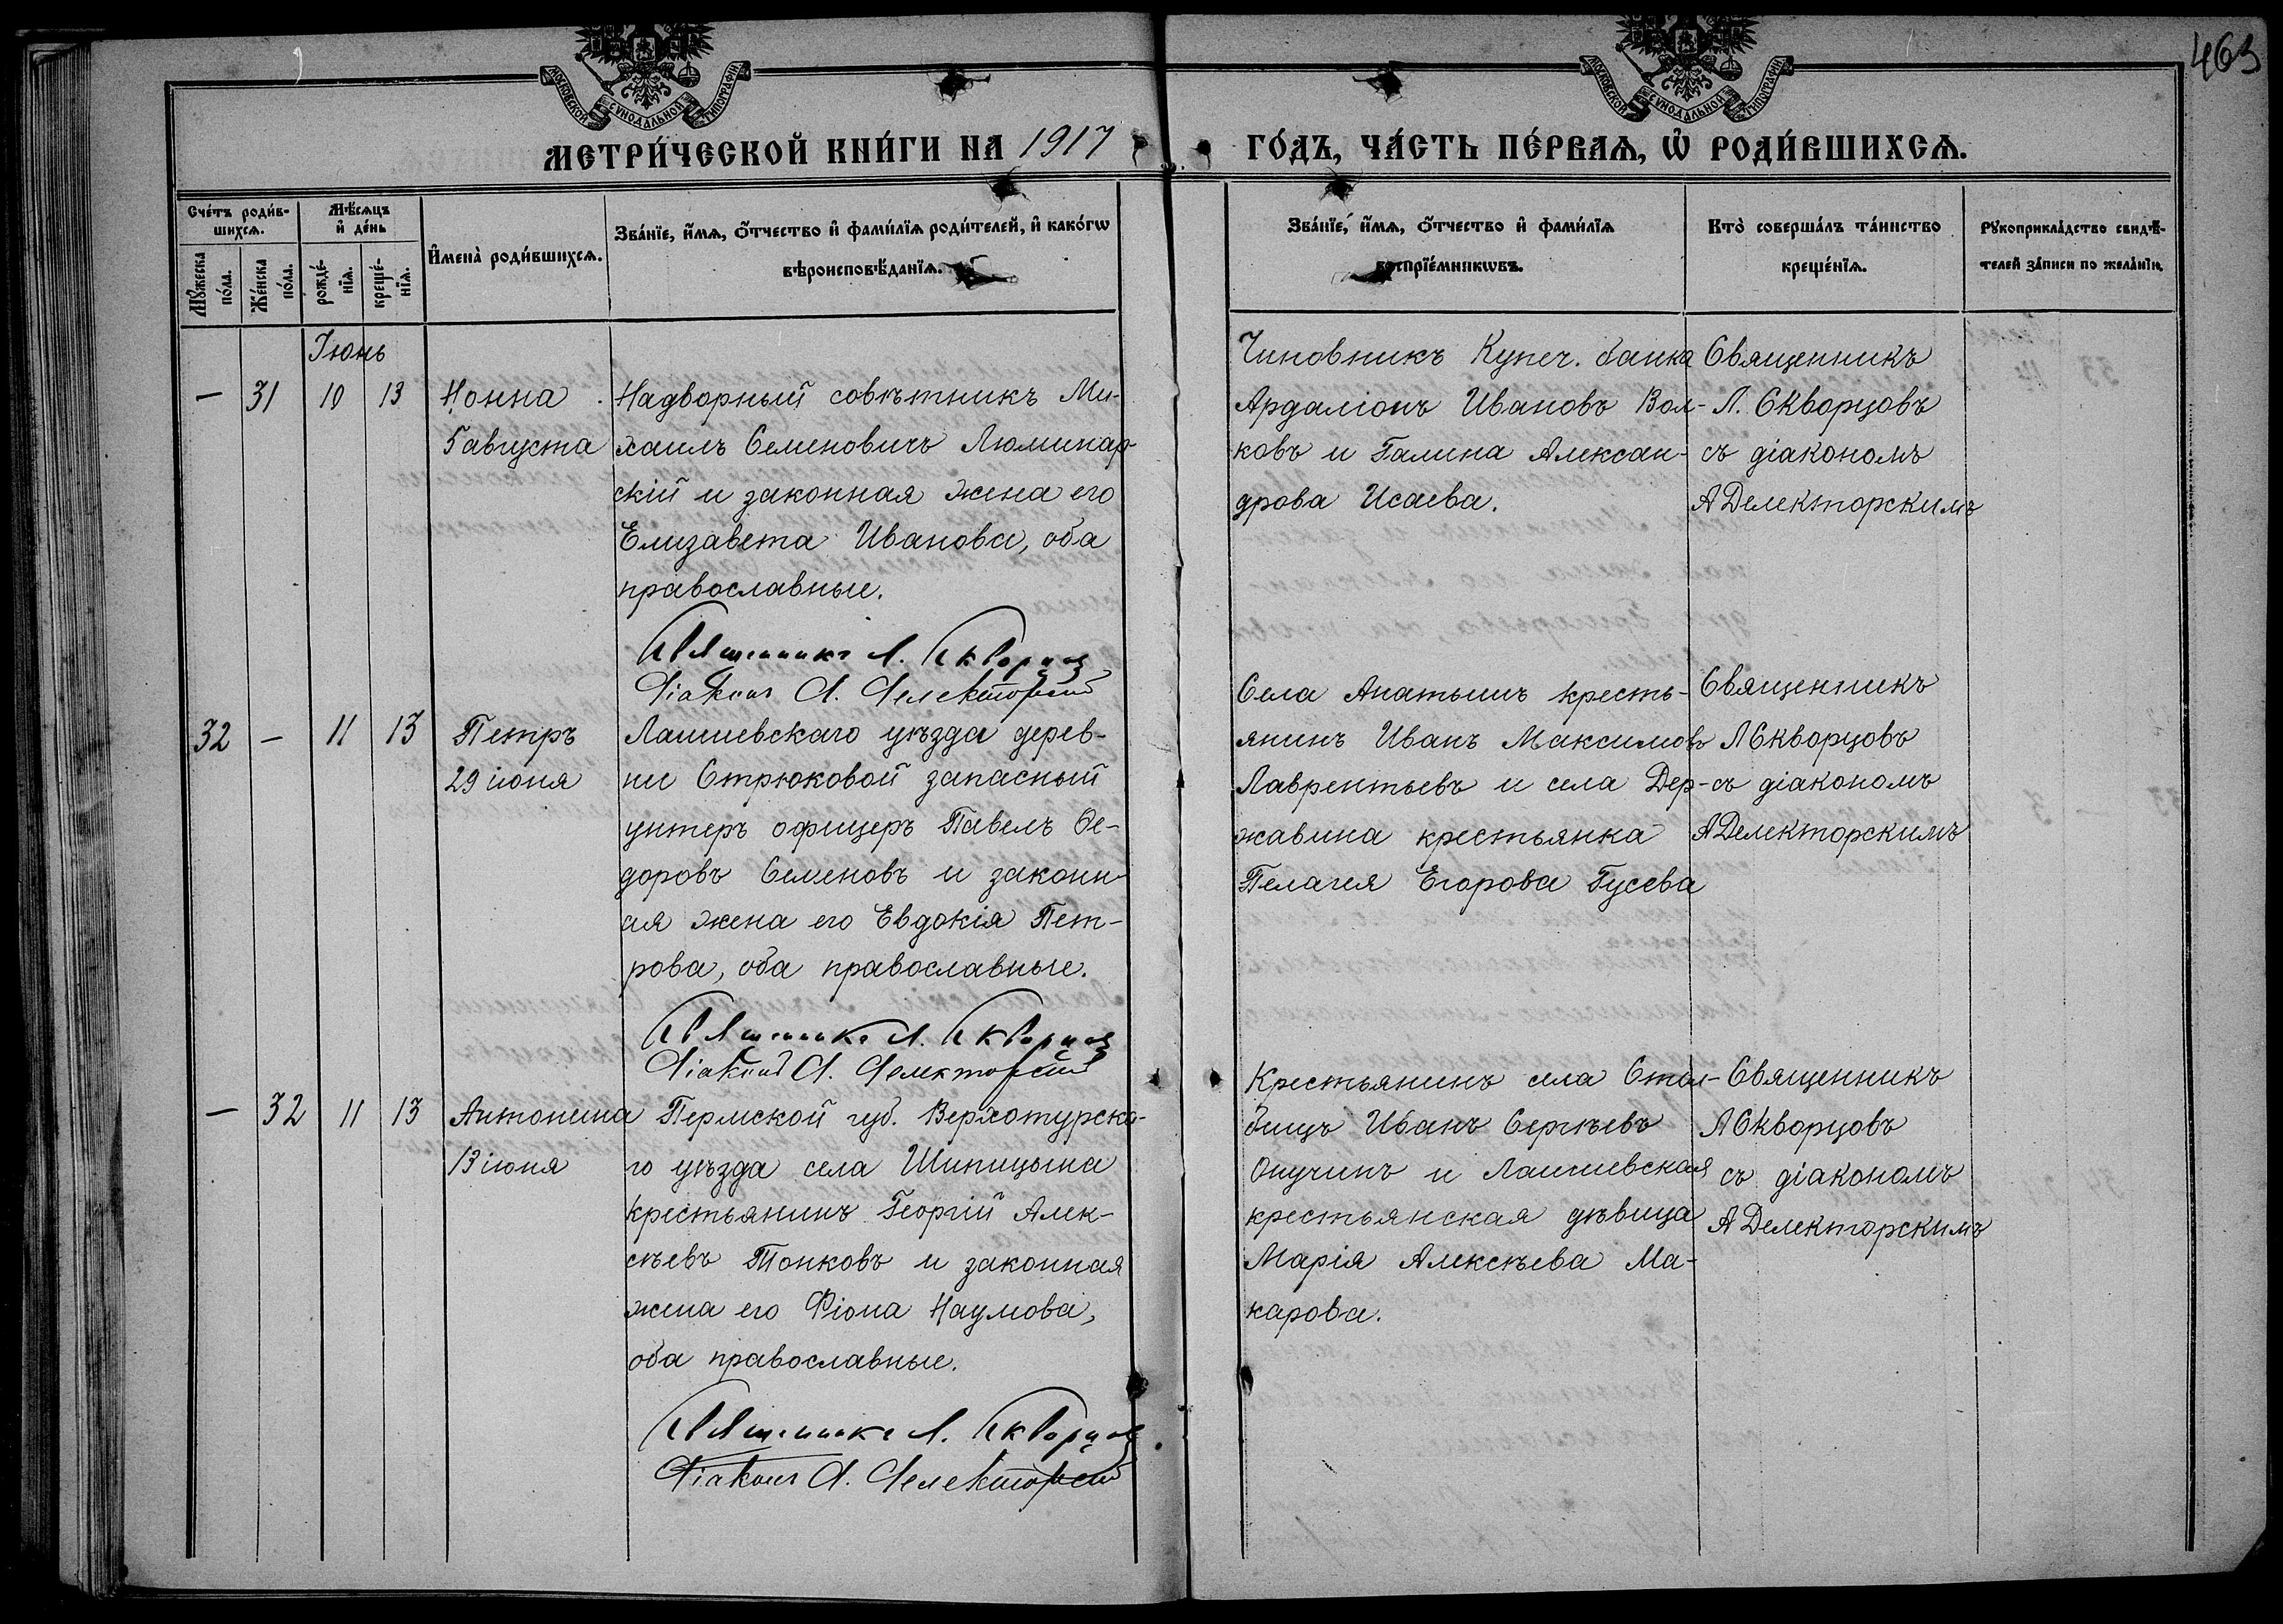 463
МОСКОВСКОЙ СѴНОДАЛЬНОЙ ТИПОГРАФІИ
МОСКОВСКОЙ СѴНОДАЛЬНОЙ ТИПОГРАФІИ
МЕТРИ́ЧЕСКОЙ КНИ́ГИ НА 1917
ГО́ДЪ, ЧА́СТЬ ПЕ́РВАѦ, Ѡ҆ РОДИ́ВШИХСѦ.
Сче́тъ роди́в-
шихсѧ.
Мѣ́сѧцъ
и҆ де́нь
Мꙋ́жеска
по́ла.
Же́нска
по́ла.
рожде́-
нїѧ.
креще́-
нїѧ.
И҆мена̀ роди́вшихсѧ.
Зва́нїе, и҆́мѧ, ѻ҆́тчество и҆ фами́лїѧ роди́телей, и҆ како́гѡ
вѣроисповѣ́данїѧ.
Зва́нїе, и҆́мѧ, ѻ҆́тчество и҆ фами́лїѧ
воспрїе́мникѡвъ.
Кто̀ соверша́лъ та́инство
креще́нїѧ.
Рꙋкоприкла́дство свидѣ́-
телей за́писи по жела́нїю.
Іюнь
— 31 10 13 Нонна
5 августа
Надворный совѣтникъ Ми-
хаилъ Семеновичъ Люминар-
скій и законная жена его
Елизавета Иванова, оба
православные.
Священникъ Л. Скворцов
Діаконъ А. Делекторскій
Чиновникъ Купеч. банка
Ардаліонъ Ивановъ Вол-
ковъ и Галина Алексан-
дрова Исаева.
Священникъ
Л. Скворцовъ
съ діакономъ
А Делекторскимъ
32 — 11 13 Петръ
29 іюня
Лаишевскаго уѣзда дерев-
ни Стрюковой запасный
унтеръ офицеръ Павелъ Ѳе-
доровъ Семеновъ и законн-
ая жена его Евдокія Пет-
рова, оба православные.
Священникъ Л. Скворцов
Діаконъ А. Делекторскій
Села Анатышъ кресть-
янинъ Иванъ Максимовъ
Лаврентьевъ и села Дер-
жавина крестьянка
Пелагея Егорова Гусева
Священникъ
Л Скворцовъ
съ діакономъ
А Делекторскимъ
— 32 11 13 Антонина
13 іюня
Пермской губ. Верхотурска-
го уѣзда села Шипицына
крестьянинъ Георгій Алек-
сѣевъ Тонковъ и законная
жена его Фіона Наумова,
оба православные.
Священникъ Л. Скворцов
Діаконъ А. Делекторскій
Крестьянинъ села Стол-
бищъ Иванъ Сергѣевъ
Опучинъ и Лаишевская
крестьянская дѣвица
Марія Алексѣева Ма-
карова.
Священникъ
Л Скворцовъ
съ діакономъ
А Делекторскимъ